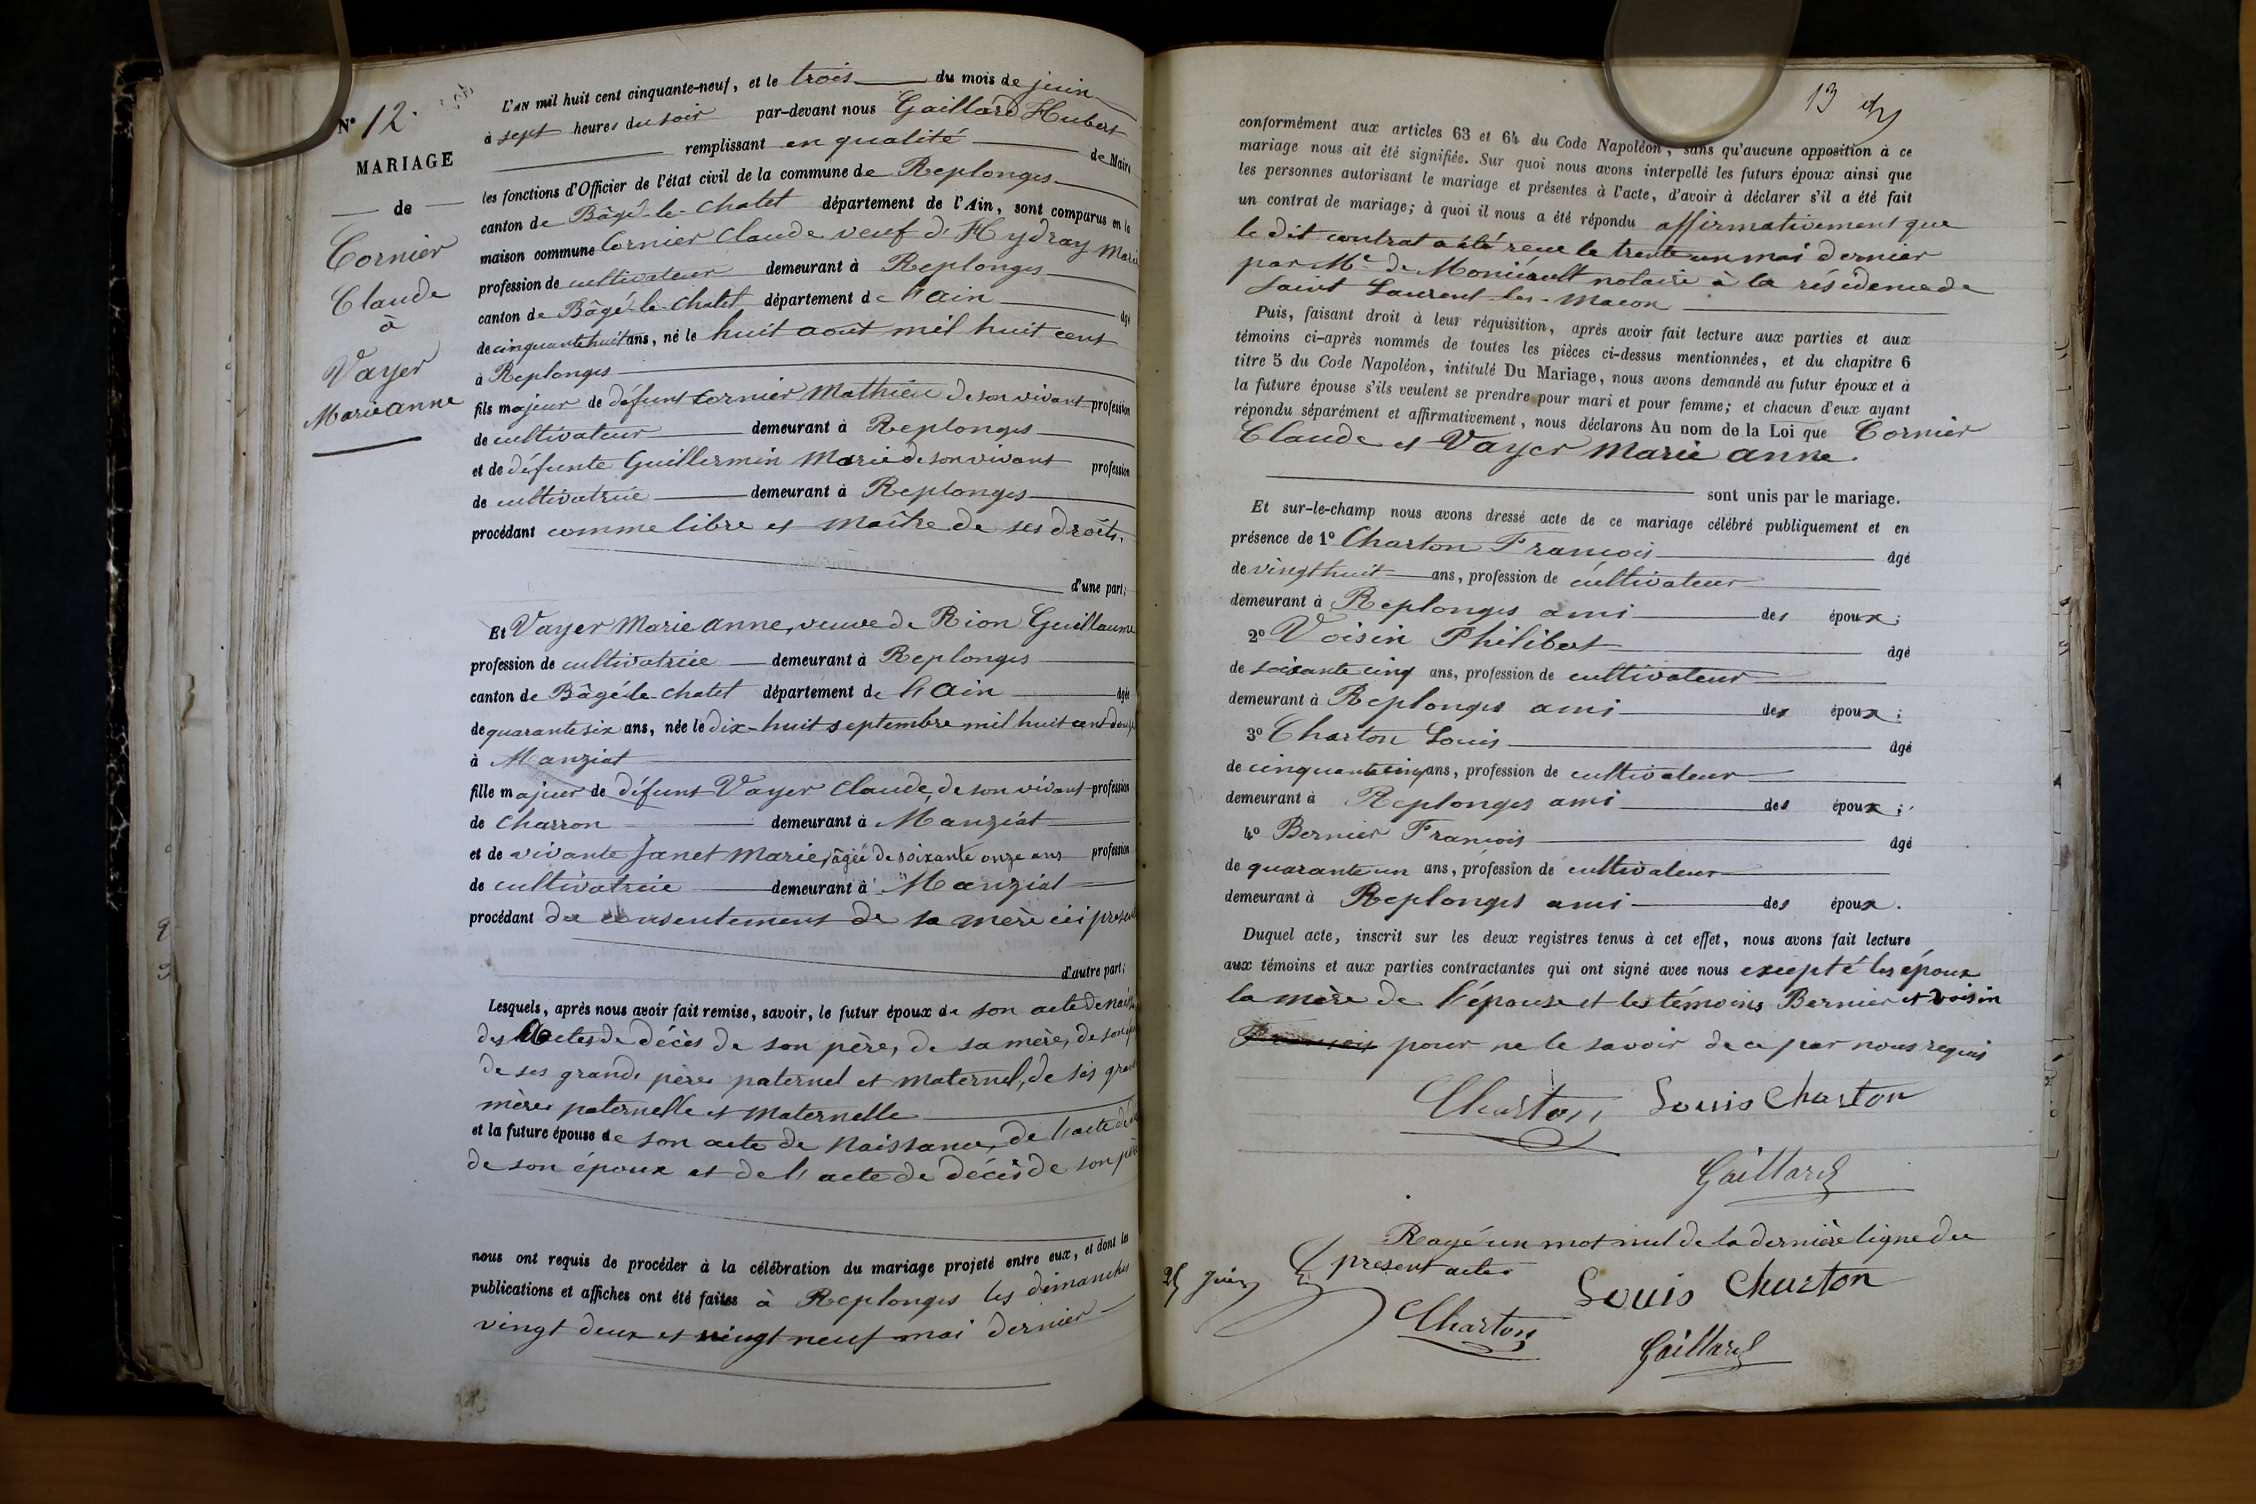 N° 12.
MARIAGE
de
Cornier
Claude
à
Vayer
Marie anne
L'AN mil huit cent cinquante-neuf, et le trois du mois de juin
à sept heures du soir par-devant nous Gaillard Hubert
remplissant en qualité de Maire
les fonctions d'Officier de l'état civil de la commune de Replonges
canton de Bâgé-le-Chatel département de l'Ain, sont comparus en la
maison commune Cornier Claude veuf d'Hydray Marie
profession de cultivateur demeurant à Replonges
canton de Bâgé-le-Chatel département de l'ain âgé
de cinquante huit ans, né le huit aout mil huit cent
à Replonges
fils majeur de défunt Cornier Mathieu de son vivant profession
de cultivateur demeurant à Replonges
et de défunte Guillermin Marie de son vivant profession
de cultivatrice demeurant à Replonges
procédant comme libre et maître de ses droits.
d'une part;
Et Vayer Marie anne, veuve de Rion Guillaume
profession de cultivatrice demeurant à Replonges
canton de Bâgé-le-Chatel département de l'ain âgée
de quarante six ans, née le dix-huit septembre mil huit cent douze
à Manziat
fille majeur de défunt Vayer Claude, de son vivant profession
de charron demeurant à Manziat
et de vivante Janet Marie, âgée de soixante onze ans profession
de cultivatrice demeurant à Manziat
procédant du consentement de sa mère ici
d'autre part;
Lesquels, après nous avoir fait remise, savoir, le futur époux de son acte de
des Actes de décès de son père, de sa mère, de son
de ses grands pères paternel et maternel, de ses
mères paternelle et maternelle
et la future épouse de son acte de Naissance, de l'acte de
de son époux et de l'acte de décès de son
nous ont requis de procéder à la célébration du mariage projeté entre eux, et dont les
publications et affiches ont été faites à Replonges les dimanches
vingt deux et vingt neuf mai dernier
13
conformément aux articles 63 et 64 du Code Napoléon, sans qu'aucune opposition à ce
mariage nous ait été signifiée. Sur quoi nous avons interpellé les futurs époux ainsi que
les personnes autorisant le mariage et présentes à l'acte, d'avoir à déclarer s'il a été fait
un contrat de mariage; à quoi il nous a été répondu affirmativement que
le dit contrat a été reçu le trente un mai dernier
par Me de Moniéault notaire à la résidence de
Saint Laurent-les-Macon
Puis, faisant droit à leur réquisition, après avoir fait lecture aux parties et aux
témoins ci-après nommés de toutes les pièces ci-dessus mentionnées, et du chapitre 6
titre 5 du Code Napoléon, intitulé Du Mariage, nous avons demandé au futur époux et à
la future épouse s'ils veulent se prendre pour mari et pour femme; et chacun d'eux ayant
répondu séparément et affirmativement, nous déclarons Au nom de la Loi que Cornier
Claude et Vayer Marie anne.
sont unis par le mariage.
Et sur-le-champ nous avons dressé acte de ce mariage célébré publiquement et en
présence de 1° Charton François âgé
de vingt huit ans, profession de cultivateur
demeurant à Replonges ami des époux;
2° Voisin Philibert âgé
de soixante cinq ans, profession de cultivateur
demeurant à Replonges ami des époux;
3° Charton Louis âgé
de cinquante cinq ans, profession de cultivateur
demeurant à Replonges ami des époux;
4° Bernier François âgé
de quarante un ans, profession de cultivateur
demeurant à Replonges ami des époux.
Duquel acte, inscrit sur les deux registres tenus à cet effet, nous avons fait lecture
aux témoins et aux parties contractantes qui ont signé avec nous excepté les époux
la mère de l'épouse et les témoins Bernier et voisin
pour ne le savoir de ce par nous requis
Charton Louis Charton
Gaillard
Rayé un mot nul de la dernière ligne du
présent acte
Louis Charton
Charton
Gaillard